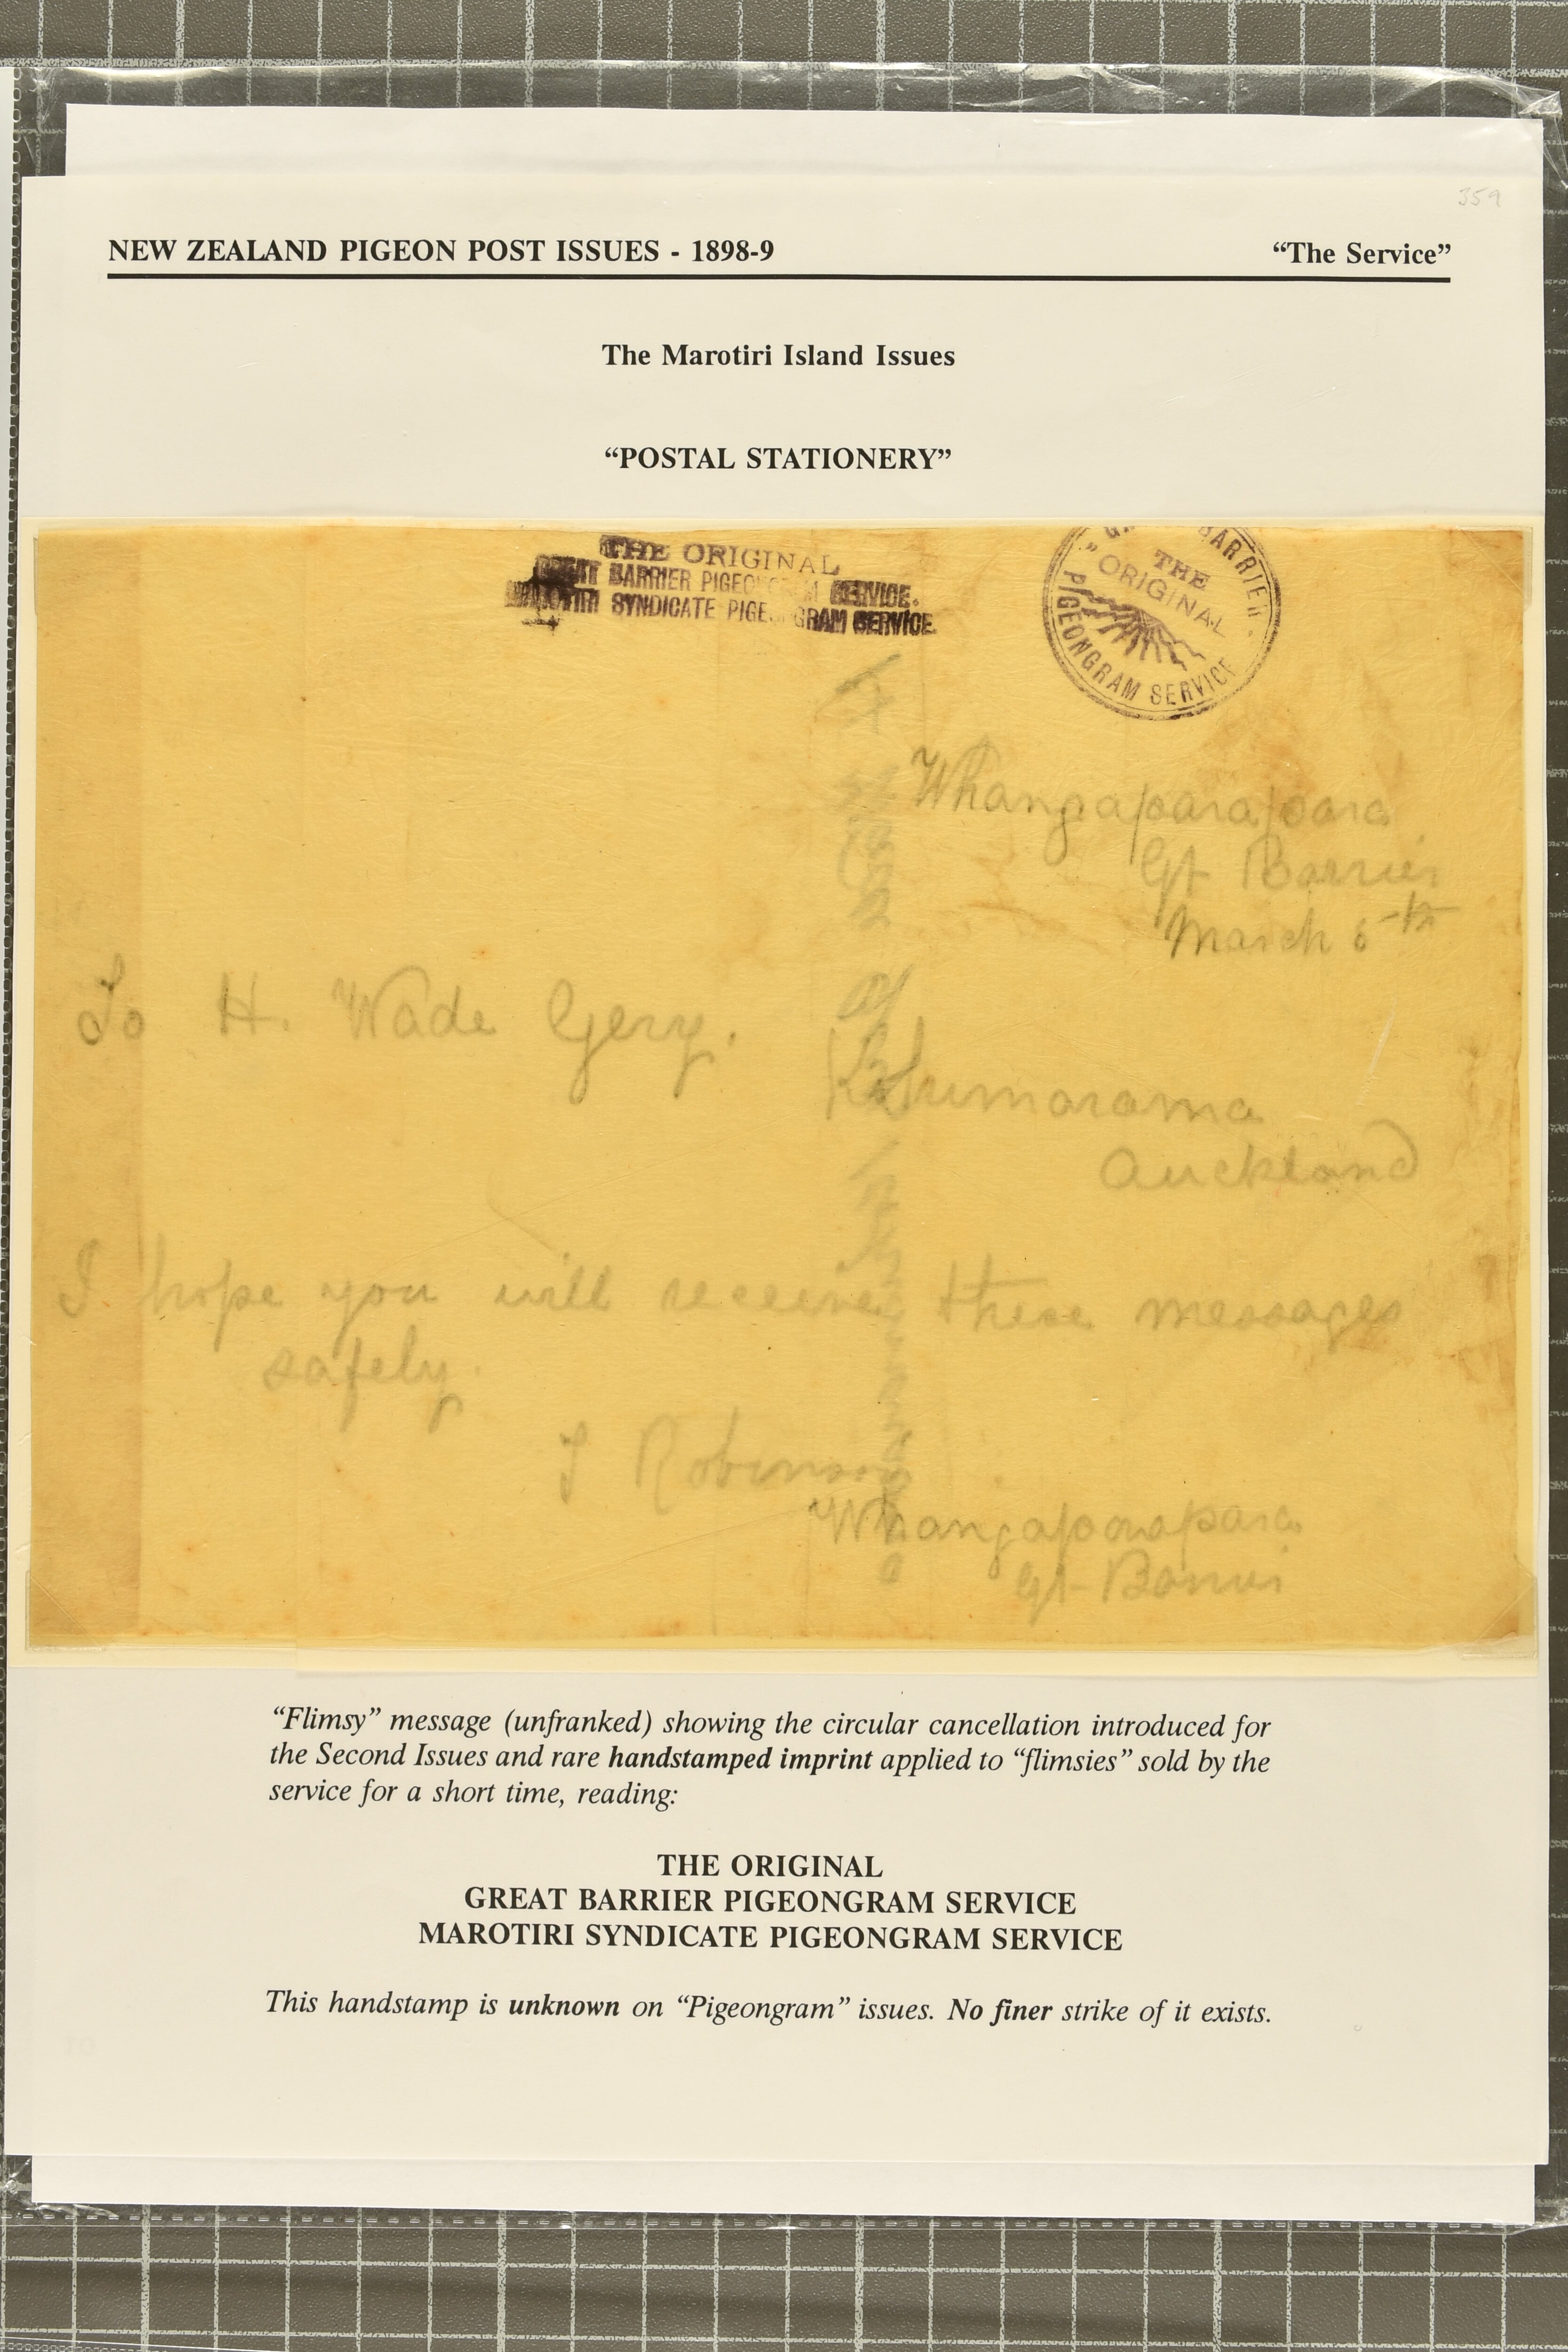 359
NEW ZEALAND PIGEON POST ISSUES - 1898-9 “The Service”
The Marotiri Island Issues
“POSTAL STATIONERY”
THE ORIGINAL
GREAT BARRIER PIGEONGRAM SERVICE.
MAROTIRI SYNDICATE PIGEONGRAM SERVICE
BARRIER
THE
"ORIGINAL
PIGEONGRAM SERVICE
Whangaparapara
Gt Barrier
March 6th
To H. Wade Gery.
Auckland
I hope you will receive these messages
safely.
Robinson
Whangaparapara
Gt Barrier
“Flimsy” message (unfranked) showing the circular cancellation introduced for
the Second Issues and rare handstamped imprint applied to “flimsies” sold by the
service for a short time, reading:
THE ORIGINAL
GREAT BARRIER PIGEONGRAM SERVICE
MAROTIRI SYNDICATE PIGEONGRAM SERVICE
This handstamp is unknown on “Pigeongram” issues. No finer strike of it exists.